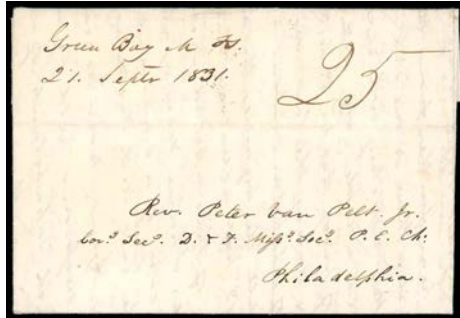 Green Bay M Ty.
21. Septr 1831.
25
Rev. Peter Van Pelt Jr.
Corg. Secy. D. & F. Missy. Socy. P. E. Ch:
Philadelphia.